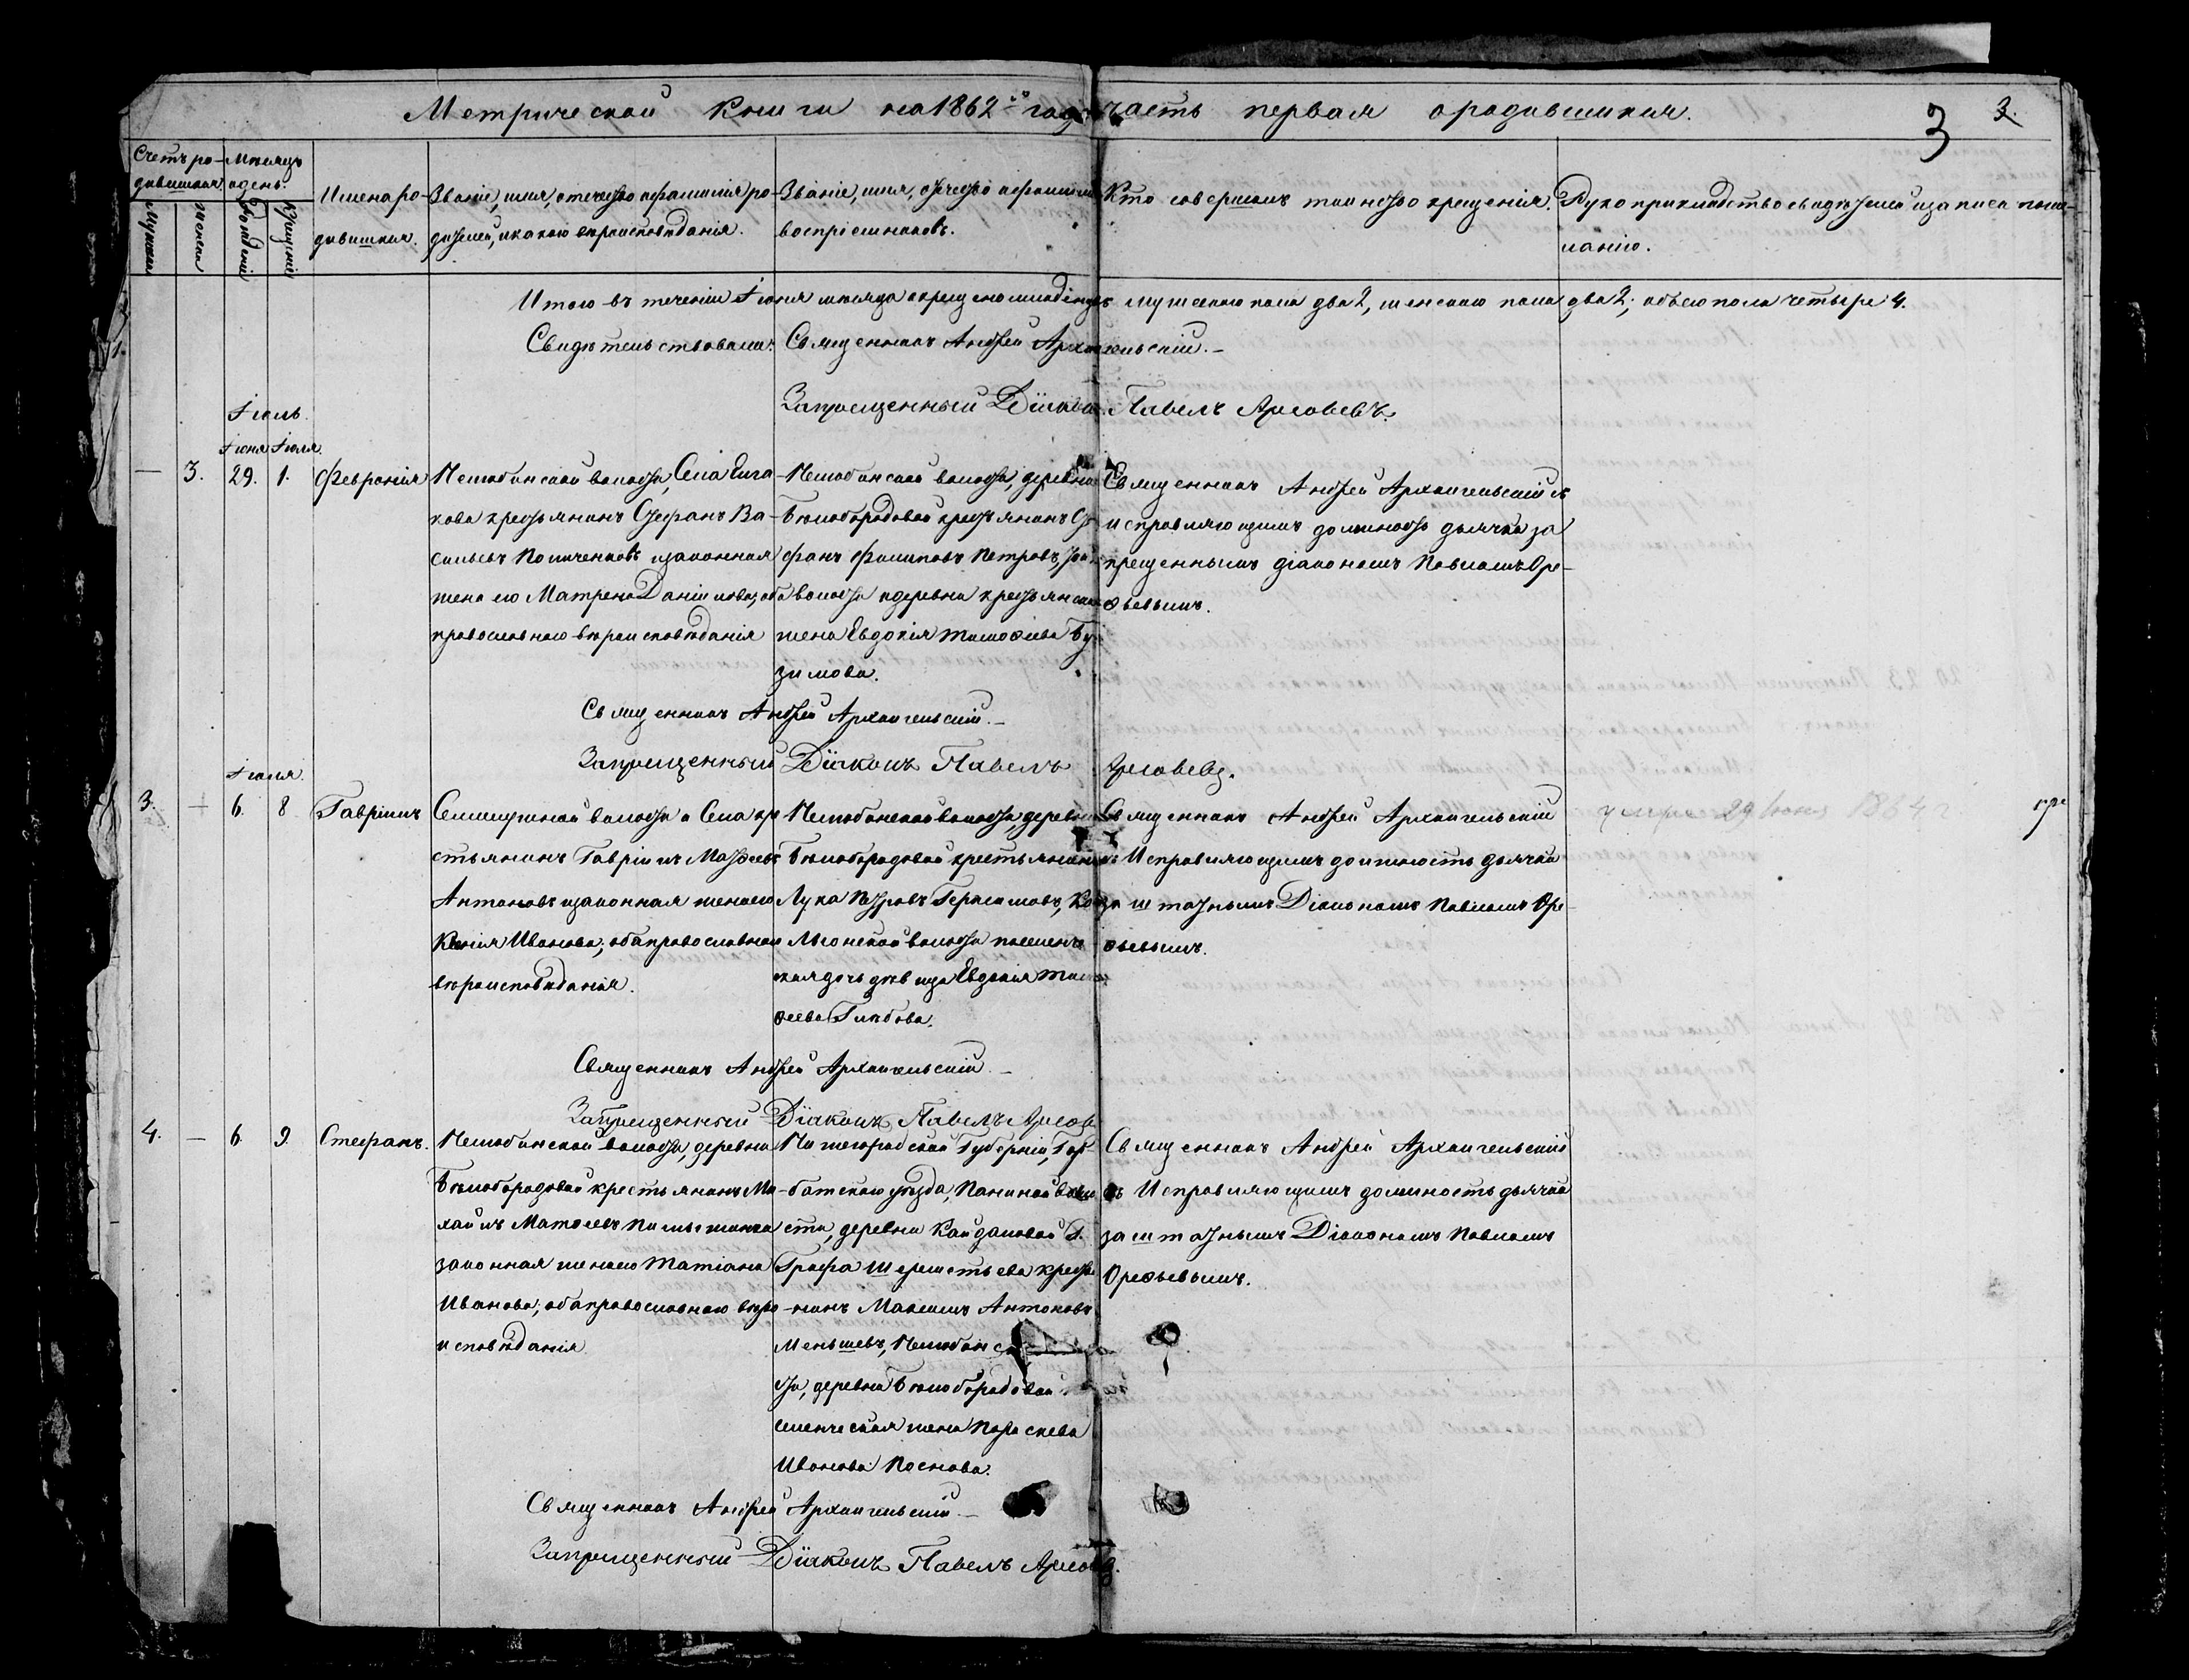 Метрической книги на 1862й годъ часть первая о родившихся.
3 3.
Счетъ ро-
дившихся.
Мѣсяцъ
и день.
Мужска
Женска
Рожденія
Крещенія
Имена ро-
дившихся.
Званіе, имя, отечество и фамилія ро-
дителей, и какого вѣроисповѣданія.
Званіе, имя, отчество и фамилія
воспріемниковъ.
Кто совершалъ таинство крещенія.
Рукоприкладство свидѣтелей
ланію.
Итого въ теченіи Іюня мѣсяца окрещено младенцовъ мужескаго пола два 2, женскаго пола два 2; обоего пола четыре 4.
Свидѣтельствовали: Священникъ Андрей Архангельскій.
Запрещенный Діаконъ Павелъ
Іюль.
Іюня Іюля.
— 3. 29. 1. Февронія
волости, Села
кова крестьянинъ Стефанъ Ва-
сильевъ и законная
жена его Матрена Даніилова; оба
православнаго вѣроисповѣданія
волости, деревни
Бѣлобородовой крестьянинъ Сте-
фанъ Филиповъ Петровъ, той
волости и деревни крестьянская
жена Евдокія Тимоѳеева Бу-
зимова.
Священникъ Андрей Архангельскій съ
исправляющимъ должность дьячка за
прещеннымъ діакономъ Павломъ Оре-
ѳьевымъ.
Священникъ Андрей Архангельскій.
Запрещенный Діаконъ Павелъ
Іюля.
3. — 6. 8 Гавріилъ
волости и Села кре
стьянинъ Гавріилъ Матѳеевъ
Антоновъ и законная жена его
Ксенія Иванова; оба православнаго
вѣроисповѣданія.
волости, деревни
Бѣлобородовой крестьянинъ
Лука Петровъ Герасимовъ,
волости
дочь дѣвица Евдокія Тимо
ѳеева Глѣбова.
Священникъ Андрей Архангельскій
съ Исправляющимъ должность дьячка
заштатнымъ Діакономъ Павломъ Оре-
ѳьевымъ.
умре 29 Іюня 1864 г
Священникъ Андрей Архангельскій.
Запрещенный Діаконъ Павелъ
4. — 6. 9. Стефанъ.
волости, деревни
Бѣлобородовой крестьянинъ Ми-
хаилъ Матѳеевъ
законная жена его Татіана
Иванова; оба православнаго вѣро-
исповѣданія.
Нижегородской Губерніи, Гор-
батскаго уѣзда, Паниной воло
сти, деревни Г.
Графа Шереметьева крестья
нинъ Максимъ Антоновъ
Меньшевъ,
сти, деревни Бѣлобородовой
жена Параскева
Иванова Поснова.
Священникъ Андрей Архангельскій
съ Исправляющимъ должность дьячка
заштатнымъ Діакономъ Павломъ
Ореѳьевымъ.
Священникъ Андрей Архангельскій.
Запрещенный Діаконъ Павелъ